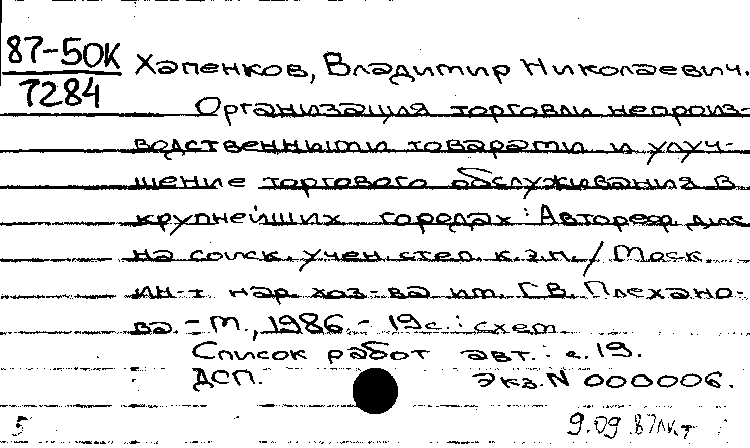 87-50К
7284
Хапенков, Владимир Николаевич.
Организация торговли непроиз-
водственными товарами и улуч-
шение торгового обслуживания в
крупнейших городах: Автореф. дис.
на соиск. учен. степ. к.э.н. / Моск.
ин-т нар. хоз-ва им. Г.В. Плехано-
ва. - М., 1986. - 19 с.: схем.
Список работ авт.: с. 19.
ДСП. Экз. N 000006.
5 9.09.87